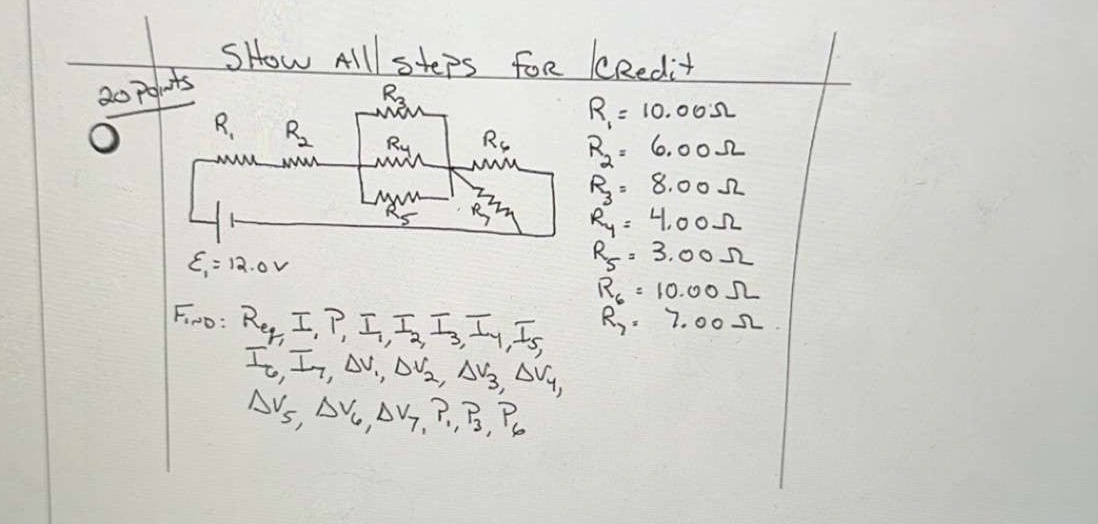 SHow All steps FOR CRedit
20 Points
R₁
R₂
R₃
R₄
R₅
R₆
R₇
ℰ₁ = 12.0 V
R₁ = 10.00 Ω
R₂ = 6.00 Ω
R₃ = 8.00 Ω
R₄ = 4.00 Ω
R₅ = 3.00 Ω
R₆ = 10.00 Ω
R₇ = 7.00 Ω
FIND: Req, I, P, I₁, I₂, I₃, I₄, I₅,
I₆, I₇, ΔV₁, ΔV₂, ΔV₃, ΔV₄,
ΔV₅, ΔV₆, ΔV₇, P₁, P₃, P₆